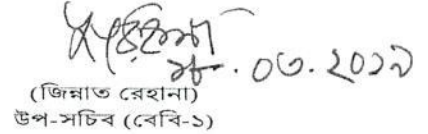 ২৮.০৩.২০১৯
(জিন্নাত রেহানা)
উপ-সচিব (বেবি-১)